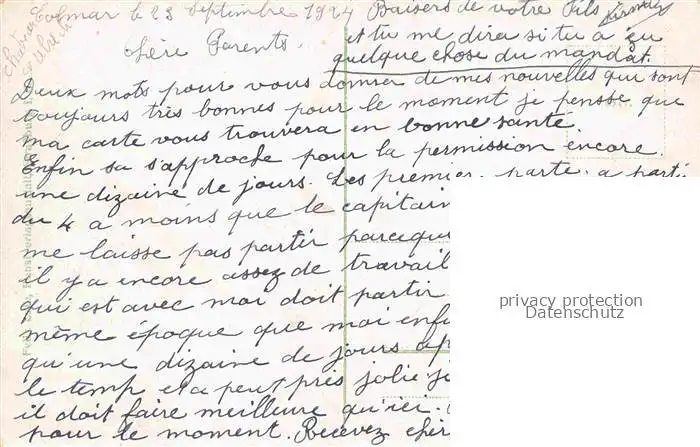 Colmar le 23 Septembre 1924
Baisers de votre Fils
Firmin
et tu me dira si tu a eu
quelque chose du mandat.
Chère Parents.
Deux mots pour vous donner de mes nouvelles qui sont
toujours très bonnes pour le moment je pensse que
ma carte vous trouvera en bonne santé.
Enfin sa s'approche pour la permission encore
une dizaine de jours. Les premier parte a parti
du 4 a moins que le capitain
me laisse pas partir parcequ
il y a encore assez de travail
qui est avec moi doit partir
même époque que moi enfi
qu'une dizaine de jours ap
le temp et a peut près jolie je
il doit faire meilleure qu'ici.
pour le moment. Recevez chèr
privacy protection
Datenschutz